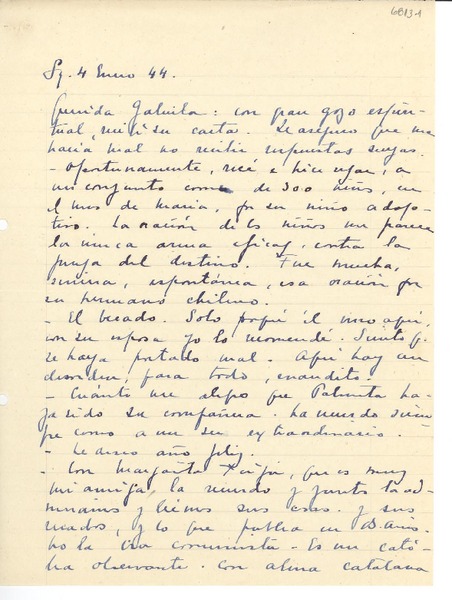 68131
Sg. 4 Enero 44.
Querida Gabriela: con gran gozo espiri-
tual, recibí su carta. Le aseguro que me
hacía mal no recibir respuestas suyas.
- Oportunamente, recé e hice rezar, a
un conjunto como de 300 niños, en
el mes de María, por su niño adop-
tivo. La oración de los niños me parece
la única arma eficaz, contra la
del destino. Fue mucha,
sincera, espontánea, esa oración por
su hermano chileno.
- El becado. Solo porqué él vino aquí,
con su esposa yo lo recomendé. Siento q.
se haya portado mal. Aquí hay un
desorden, para todo, inaudito.
- Cuánto me alegro que Palmita ha-
ya sido su compañera. La recuerdo siem
pre como a un ser extraordinario.
- Le deseo año feliz.
- Con Margarita Xirgú, que es muy
mi amiga, la recuerdo y juntos la ad-
miramos y leemos sus cosas. y sus
recados, y lo que publica en B. Aires.
No la creo comunista. Es un cató-
lica observante. Con alma catalana